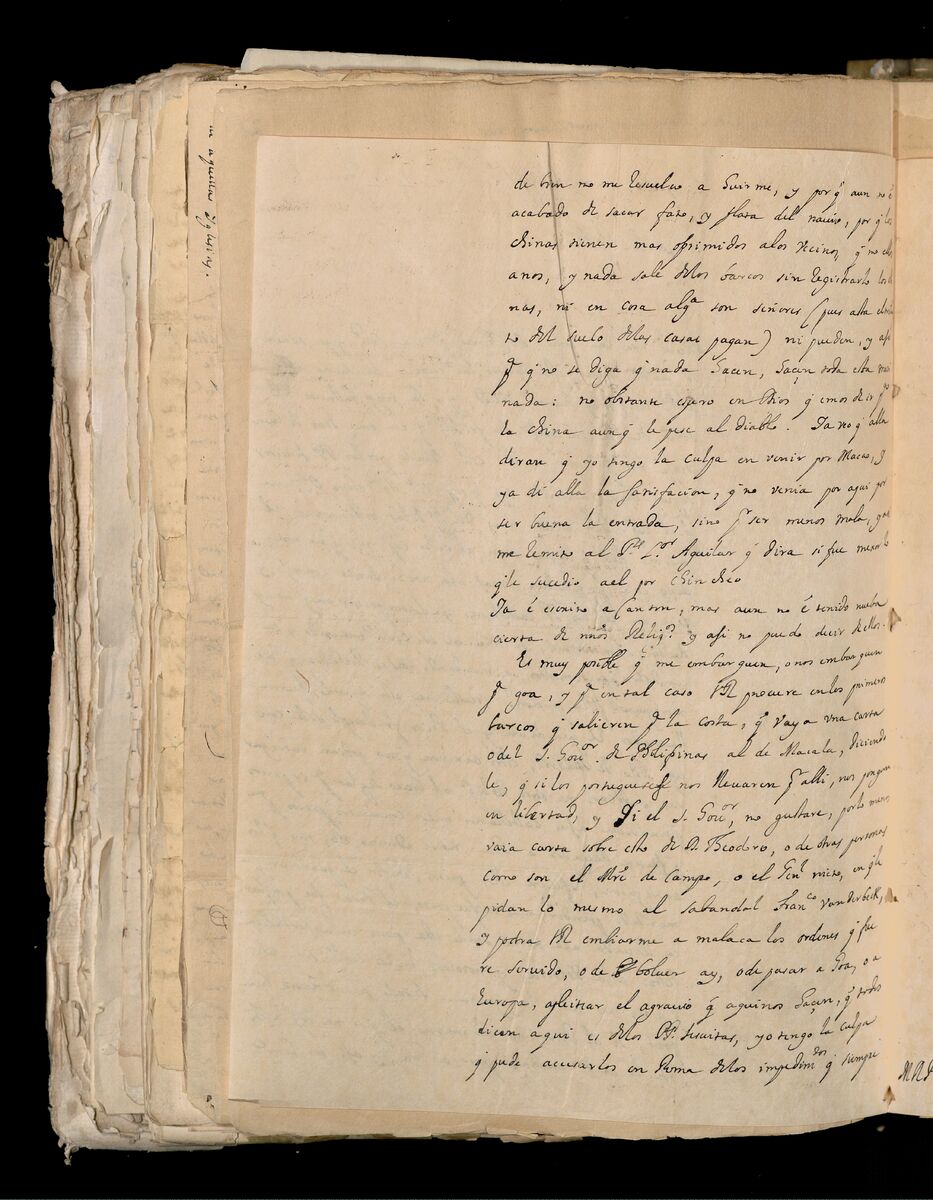 en aquellas Iglesias.
de bien no me resuelvo a huirme, y por q̃ aun no é
acabado de sacar fato, y plata del navio, por q̃ los
chinas tienen mas oprimidos alos vecinos q̃ no
anos, y nada sale delos barcos sin registrarlo los
nas, ni en cosa alga son señores (pues asta el
to del suelo delas casas pagan) ni pueden, y asi
pa q̃ no se diga q̃ nada haçen, haçen toda esta
nada: no obstante espero en Dios q̃ emos de ir pa
la china aunq̃ le pese al diablo. Ia veo q̃ alla
diran q̃ yo tengo la culpa en venir por Macao, y
ya di alla la satisfacion, q̃ no venia por aqui por
ser buena la entrada, sino pr ser menos mala, y
me remito al Pe. Lor Aguilar q̃ dira si fue mexor lo
q̃ le sucedio a el por Chincheo
Ia é escrito a Canton, mas aun no é tenido nueba
cierta de nros Religos. y asi no puedo decir dellos.
Es muy posible q̃ me embarquen, o nos embarquen
pa goa, y pa en tal caso VR procure en los primeros
barcos q̃ salieren pa la costa, q̃ vaya vna carta
o del S. Gouor. de Philipinas al de Malaca, diciendo
le, q̃ si los portugueses nos llevaren pr alli, nos pongan
en libertad, y si el S. Gouor, no gustare, por lo menos
vaia carta sobre esto de D. Theodoro, o de otras personas
como son el Mre de Campo, o el Genl nieto, en q̃ le
pidan lo mesmo al sabandal Franco Vanderbeek,
y podra VR embiarme a malaca los ordenes q̃ fue
re servido, o de bolver ay, o de pasar a Goa, o a
Europa, a pleitear el agravio q̃ aqui nos haçen, q̃ todos
dicen aqui es delos PPs. Jesuitas, yo tengo la culpa
q̃ pude acusarlos en Roma delos impedimtos q̃ siempre